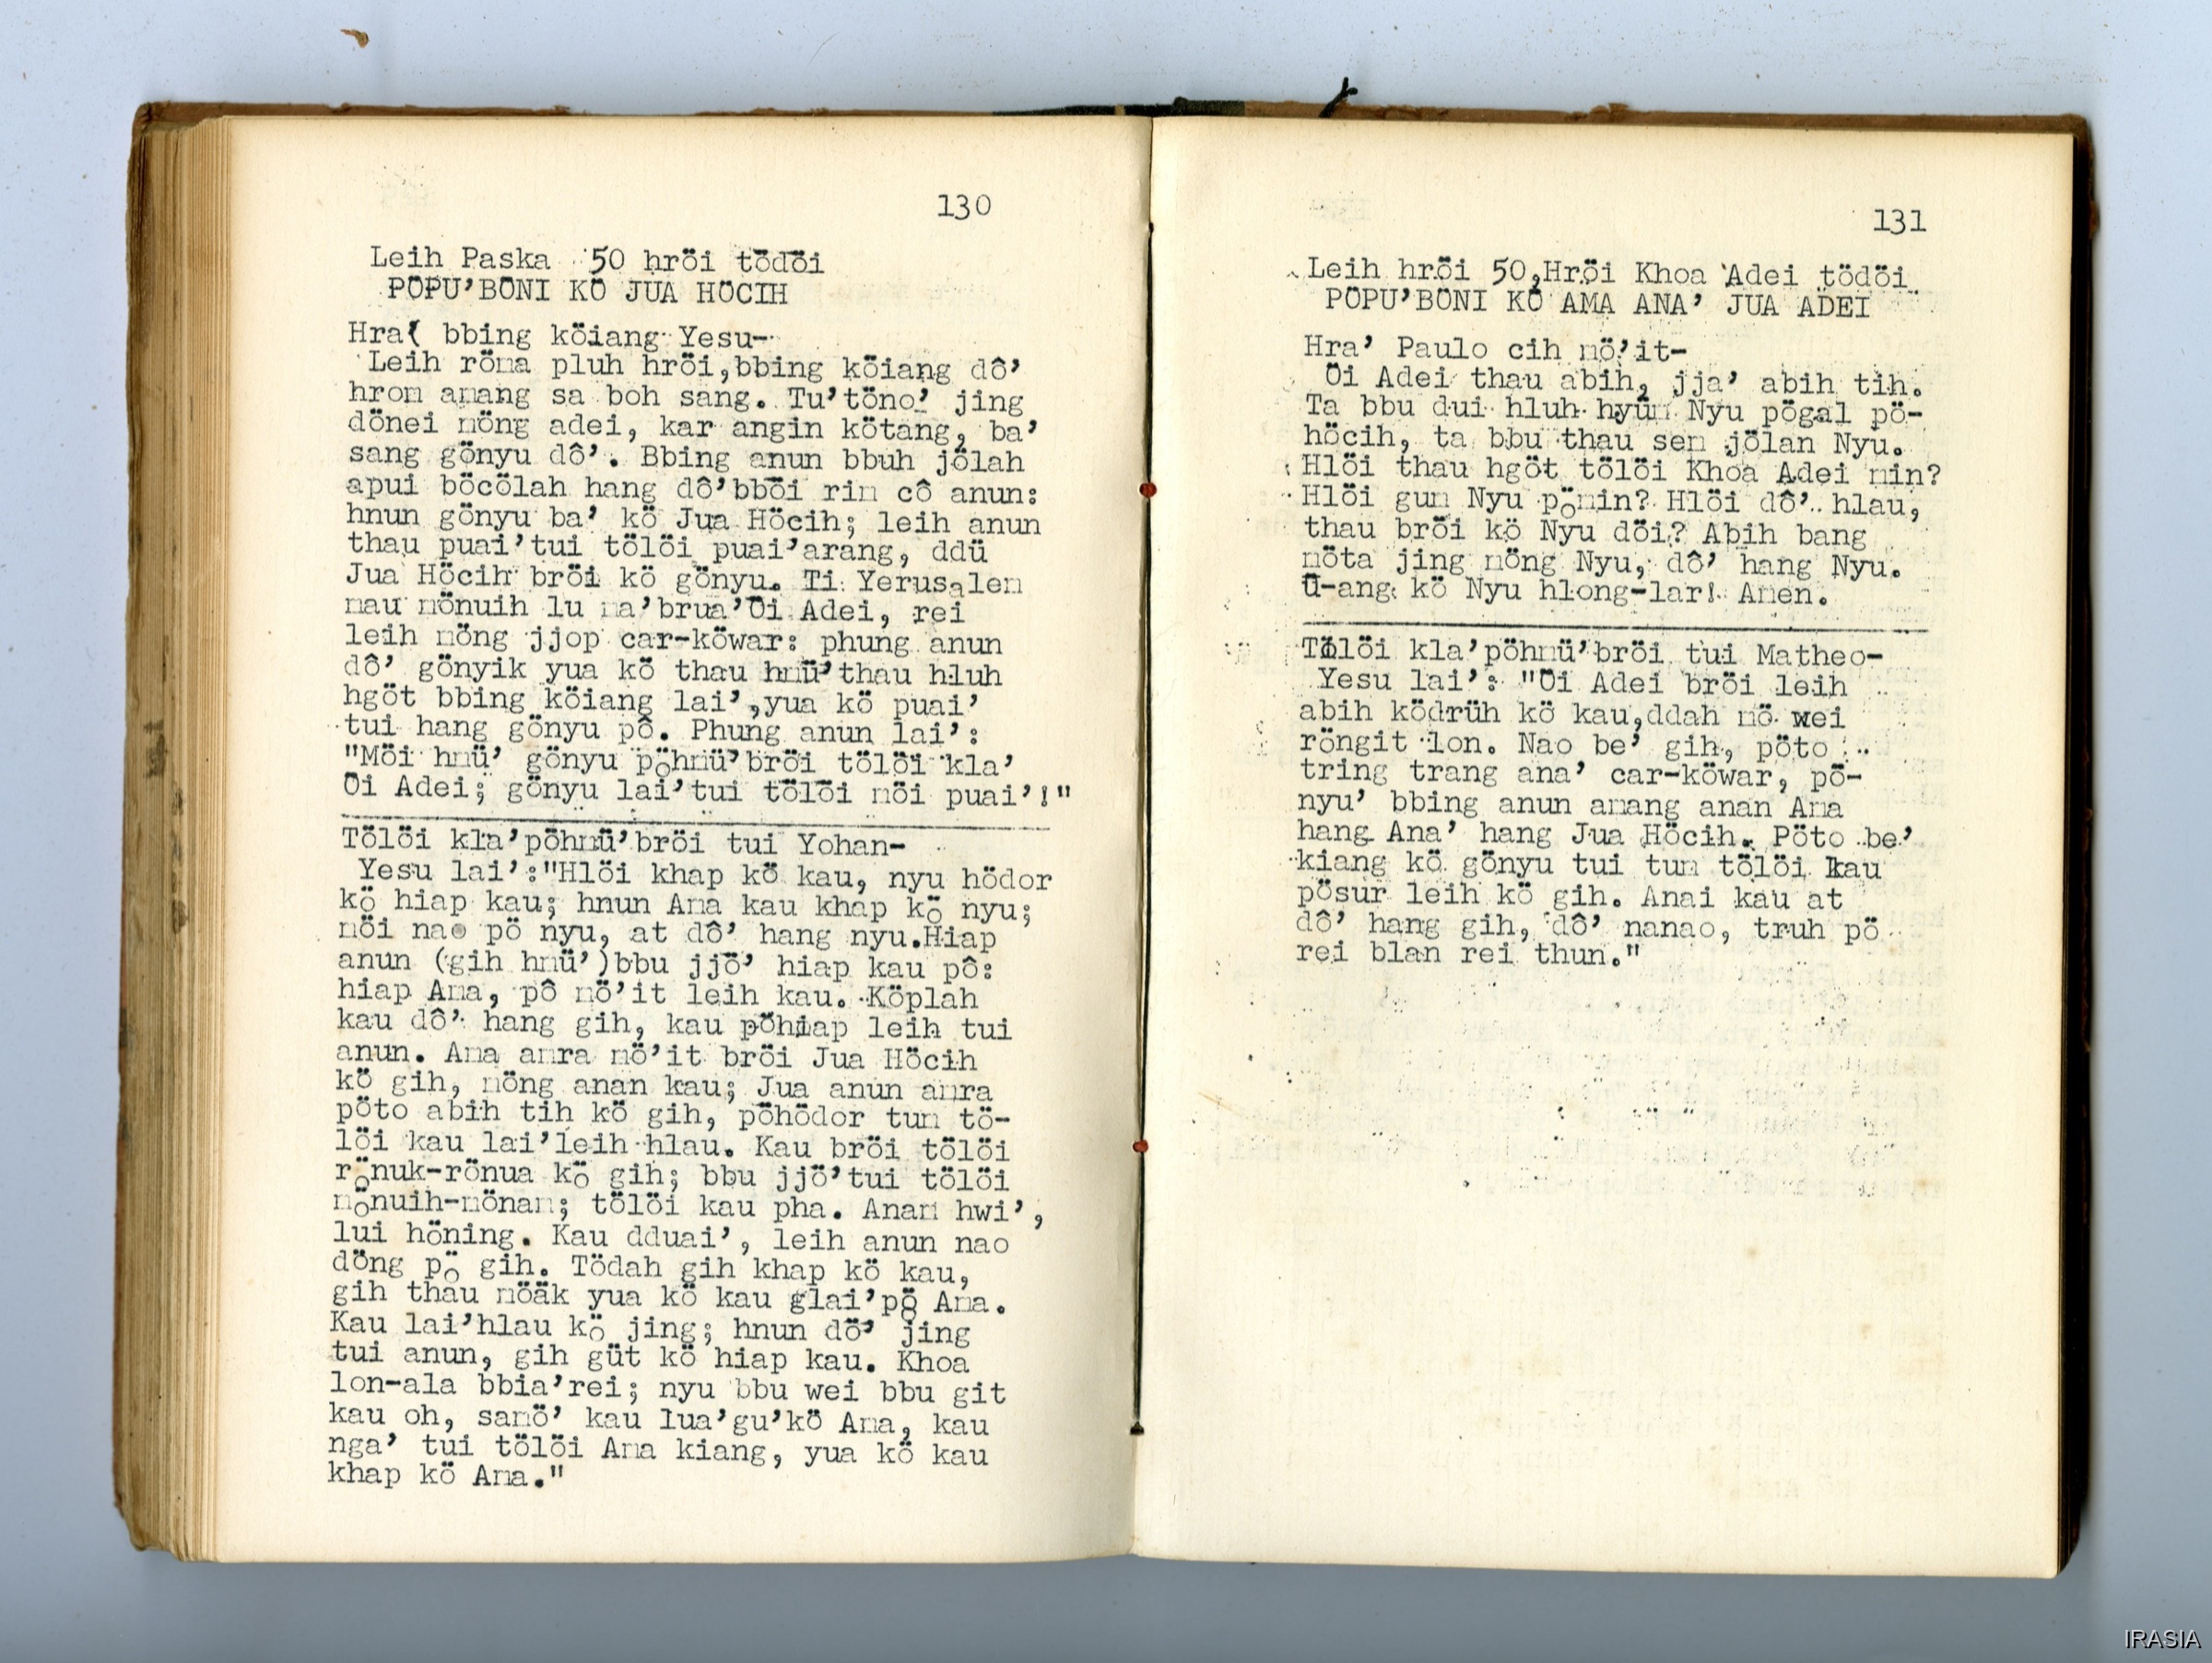 130
Leih Paska 50 hröi tödöi
PÖPU'BÖNI KÖ JUA HÖCIH
Hra' bbing köiang Yesu-
Leih röma pluh hröi,bbing köiang dô'
hrom amang sa boh sang. Tu'töno' jing
dönei möng adei, kar angin kötang, ba'
sang gönyu dô'. Bbing anun bbuh jölah
apui böcölah hang dô'bböi rim cô anun:
hnun gönyu ba' kö Jua Höcih; leih anun
thau puai'tui tölöi puai'arang, ddü
Jua Höcih bröi kö gönyu. Ti Yerusalem
mau mönuih lu ma'brua'Öi Adei, rei
leih möng jjop car-köwar: phung anun
dô' gönyik yua kö thau hmü'thau hluh
hgöt bbing köiang lai',yua kö puai'
tui hang gönyu pô. Phung anun lai':
"Möi hmü' gönyu pöhmü'bröi tölöi kla'
Öi Adei; gönyu lai'tui tölöi möi puai'!"
Tölöi kla'pöhmü'bröi tui Yohan-
Yesu lai':"Hlöi khap kö kau, nyu hödor
kö hiap kau; hnun Ama kau khap kö nyu;
möi nao pö nyu, at dô' hang nyu.Hiap
anun (gih hmü')bbu jjö' hiap kau pô:
hiap Ama, pô mö'it leih kau. Köplah
kau dô' hang gih, kau pöhiap leih tui
anun. Ama amra mö'it bröi Jua Höcih
kö gih, möng anan kau; Jua anun amra
pöto abih tih kö gih, pöhödor tum tö-
löi kau lai'leih hlau. Kau bröi tölöi
rönuk-rönua kö gih; bbu jjö'tui tölöi
mönuih-mönam; tölöi kau pha. Anam hwi',
lui höning. Kau dduai', leih anun nao
döng pö gih. Tödah gih khap kö kau,
gih thau möäk yua kö kau glai'pö Ama.
Kau lai'hlau kö jing; hnun dö' jing
tui anun, gih güt kö hiap kau. Khoa
lon-ala bbia'rei; nyu bbu wei bbu git
kau oh, samö' kau lua'gu'kö Ama, kau
nga' tui tölöi Ama kiang, yua kö kau
khap kö Ama."
131
Leih hröi 50,Hröi Khoa Adei tödöi
PÖPU'BÖNI KÖ AMA ANA' JUA ADEI
Hra' Paulo cih mö'it-
Öi Adei thau abih, jja' abih tih.
Ta bbu dui hluh hyüm Nyu pögal pö-
höcih, ta bbu thau sem jölan Nyu.
Hlöi thau hgöt tölöi Khoa Adei min?
Hlöi gum Nyu pömin? Hlöi dô' hlau,
thau bröi kö Nyu döi? Abih bang
möta jing möng Nyu, dô' hang Nyu.
Ü-ang kö Nyu hlong-lar! Amen.
Tölöi kla'pöhmü'bröi tui Matheo-
Yesu lai': "Öi Adei bröi leih
abih ködrüh kö kau,ddah mö wei
röngit lon. Nao be' gih, pöto
tring trang ana' car-köwar, pö-
nyu' bbing anun amang anan Ama
hang Ana' hang Jua Höcih. Pöto be'
kiang kö gönyu tui tum tölöi kau
pösur leih kö gih. Anai kau at
dô' hang gih, dô' nanao, truh pö
rei blan rei thun."
IRASIA